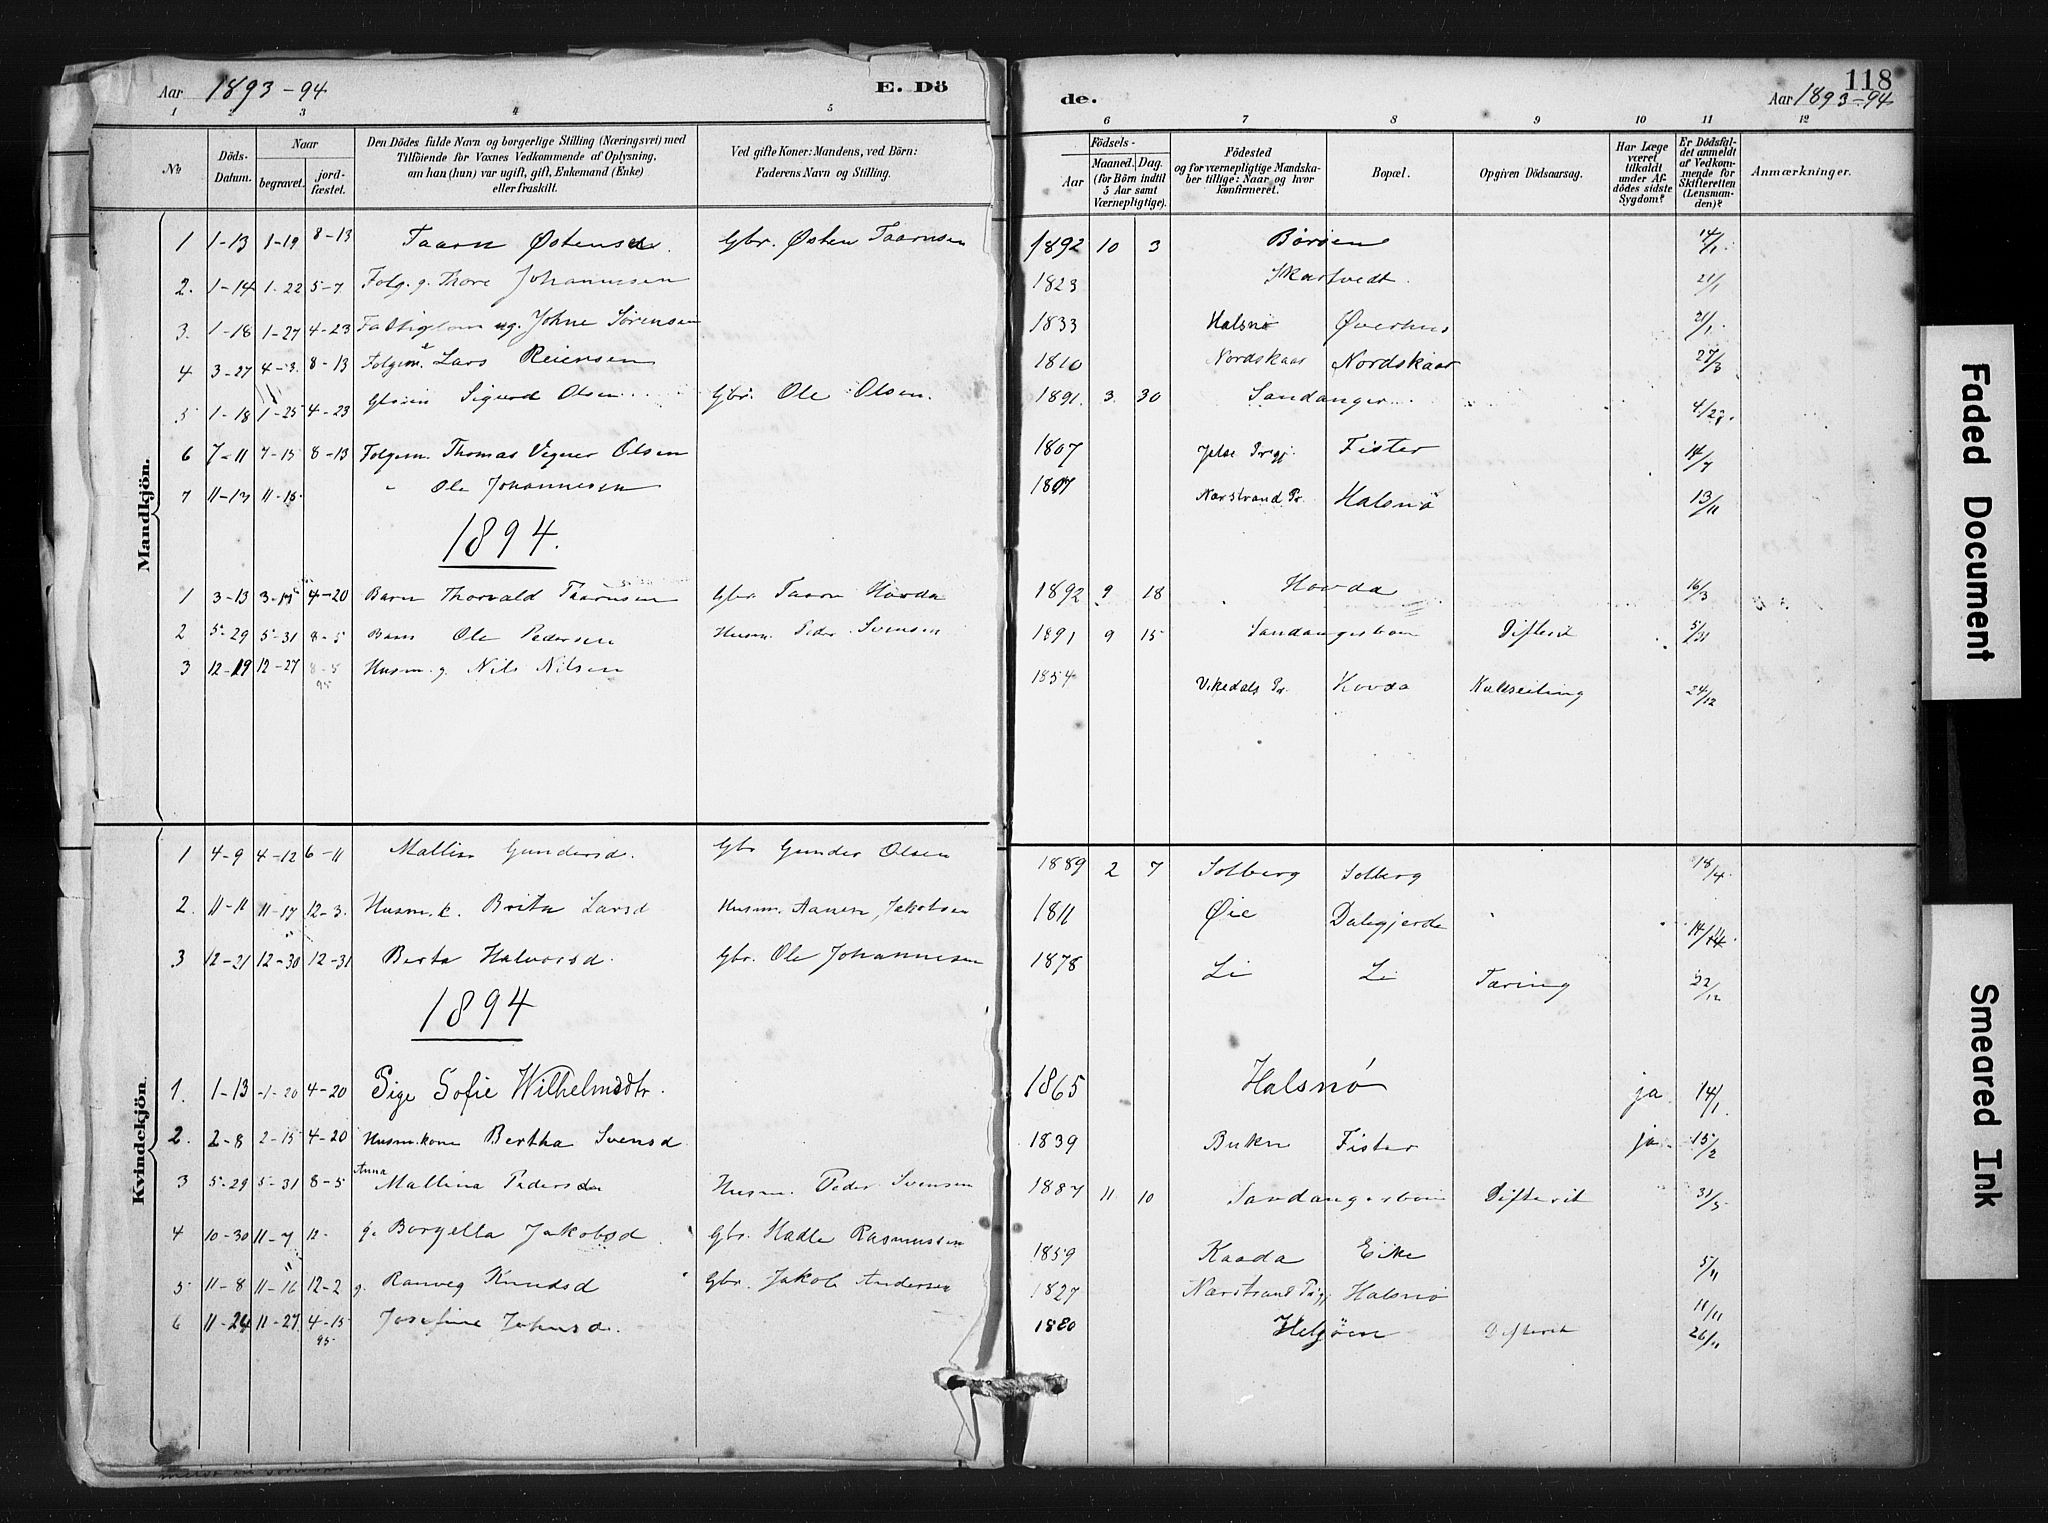 118
Aar 1893-94 E. Dö de. Aar 1893-94
1 2 3 4 5 6 7 8 9 10 11 12
No Döds-Datum. Naar begravet. jordfæstet. Den Dödes fulde Navn og borgerlige Stilling (Næringsvei) med Tilföiende for Voxnes Vedkommende af Oplysning, om han (hun) var ugift, gift, Enkemand (Enke) eller fraskilt. Ved gifte Koner: Mandens, ved Börn: Faderens Navn og Stilling. Födsels- Aar Maaned. Dag. (for Börn indtil 5 Aar samt Værnepligtige). Födested og for værnepligtige Mandskaber tillige: Naar og hvor konfirmeret. Bopæl. Opgiven Dödsaarsag. Har Læge været tilkaldt under Afdödes sidste Sygdom? Er Dödsfaldet anmeldt af Vedkommende for Skifteretten (Lensmanden)? Anmærkninger.
Mandkjön.
1 1-13 1-19 8-13 Taarn Østensen. Gbr. Østen Taarnsen 1892 10 3 Böröen 14/1.
2. 1-14 1-22 5-7 Folg. g. Thore Johannessen 1823 Skartvedt. 21/1
3. 1-18 1-27 4-23 ug. Johne Sörensen 1833 Halsnø Øverhus 21/1.
4 3-27 4-3. 8-13 Folgem. Lars Reiersen 1810 Nordskaar Nordskaar 27/3
5 1-18 1-25 4-23 Sigurd Olsen Gbr. Ole Olsen. 1891. 3. 30 Sandanger
6 7-11 7-15 8-13 Folgem. Thomas Vegner Olsen 1807 Jelse Prgj. Fister 14/7
7 11-13 11-15. " Ole Johannesen 1807 Narstrand Pr. Halsnö 13/11
1894.
1 3-13 4-20 Barn Thorvald Taarnsen Gbr Taarn Hovda 1892 9 18 Hovda 16/3
2 5-29 5-31 8-5 Barn Ole Pedersen Husm. Peder Svensen 1891 9 15 Sandangersboen Difterit 5/31
3 12-19 12-27 8-5 95 Husm. g. Nils Nilsen 1854 Vikedals Pr. Hovda 24/12
Kvindekjön.
1 4-9 4-12 6-11 Mallin Gundersd. Gbr Gunder Olsen 1889 2 7 Solberg Solberg 18/4.
2. 11-11 11-17 12-3. Husm. k. Brita Larsd Husm. Jakobsen 1811 Øie Dalegjerde
3 12-21 12-30 12-31 Berta Halvorsd. Gbr. Ole Johannesen 1878 Li Li Tæring 22/12
1894
1. 1-13 -1-20 4-20 Pige Sofie Wilhelmsdtr. 1865 Halsnø ja. 14/1.
2. 2-8 2-15 4-20 Husm. kone Bertha Svensd 1839 Bukn Fister ja. 15/2
3 5-29 5-31 8-5 Anna Mallina Pedersd Husm. Peder Svensen 1887 11 10 Sandangersboen Difterit 31/5
4 10-30 11-7 12- g. Borgella Jakobsd Gbr. Hadle Rasmussen 1859 Kaada Eike 5/11
5 11-8 11-16 12-2 g. Ranveg Knudsd Gbr. Jakob Andersen 1827 Narstrand Prgj Halsnø 11/11
6 11-24 11-27. 4-15 95 Josefine Johnsd. 1880 Helgöen Difterit 26/11
Faded Document
Smeared Ink